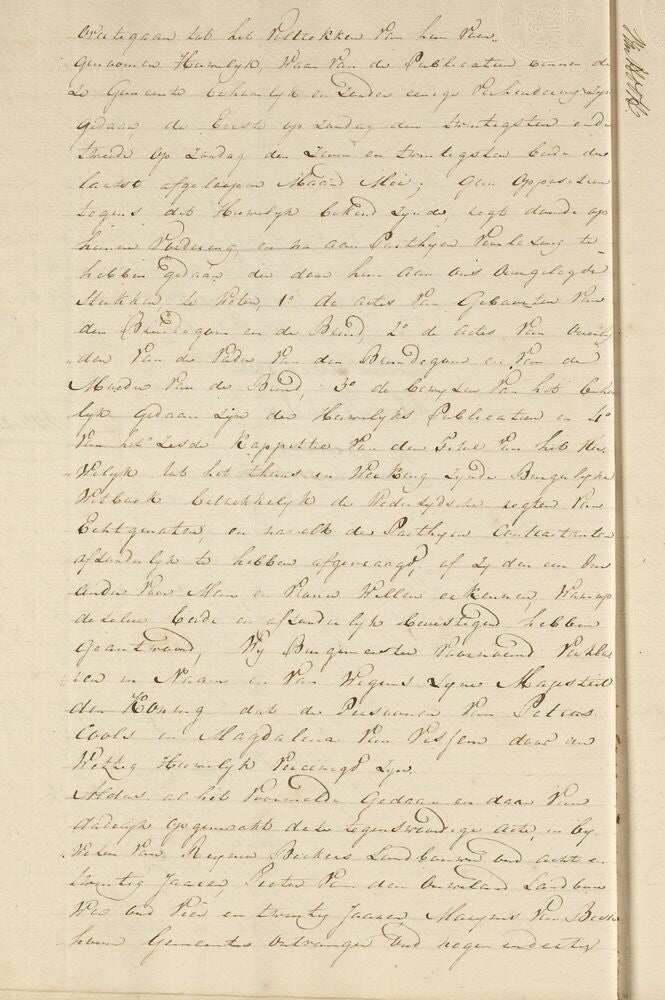 overtegaan tot het Voltrekken Van hun Voor„
genoomen Huwelyk, Waar Van de Publicatien binnen de
ze Gemeente behoorlyk en zonder eenige Verhindering zyn
gedaan de Eerste op zondag den twintigsten ende
tweede op Zondag den Zeven en twintigsten beide der
laatst afgeloopen Maand Mei; Geen Oppositien
tegens dit Huwelyk bekend Zynde, regt doende op
hunne Vordering, en na aan Parthyen Voorlezing te
hebben gedaan der door hun aan ons Overgelegde
Stukken te Weten, 1º de actes Van Geboorten Van
den Bruidegom en de Bruid, 2º de actes Van Overly„
„den Van de Vader Van den Bruidegom en Van de
Moeder Van de Bruid, 3º de bewyzen Van het behoor
lyk gedaan zyn der Huwelyks Publicatien en 4º
Van het Zesde Kappittel Van den Titel Van het Hu„
„Welyk Uit het thans in Werking Zynde Burgerlyke
Wetboek betrekkelyk de Wederzydsche regten Van
Echtgenoten, en na elk der Parthyen Contractanten
afzonderlyk te hebben afgevraagd, of zy den een den
ander Voor Man en Vrouw Willen erkennen, Waarop
dezelve beide en afzonderlyk bevestigend hebben
Geantwoord, Wy Burgemeester Voornoemd Verkla„
„ren in Naam en Van Wegens Zyne Majesteit
den Koning dat de Persoonen Van Petrus
Cools en Magdalena Van Vessem door een
Wettig Huwelyk Vereenigd Zyn.
Aldus al het Voormelde Gedaan en daar Van
dadelyk opgemaakt deze tegenswoordige acte, in by„
„Wezen Van Reynier Beckers Landbouwer oud acht en
twintig Jaaren, Pieter Van den Landbou
Wer oud Vier en twentig Jaaren, Van
hoven Gemeente Ontvanger Oud negen endertig